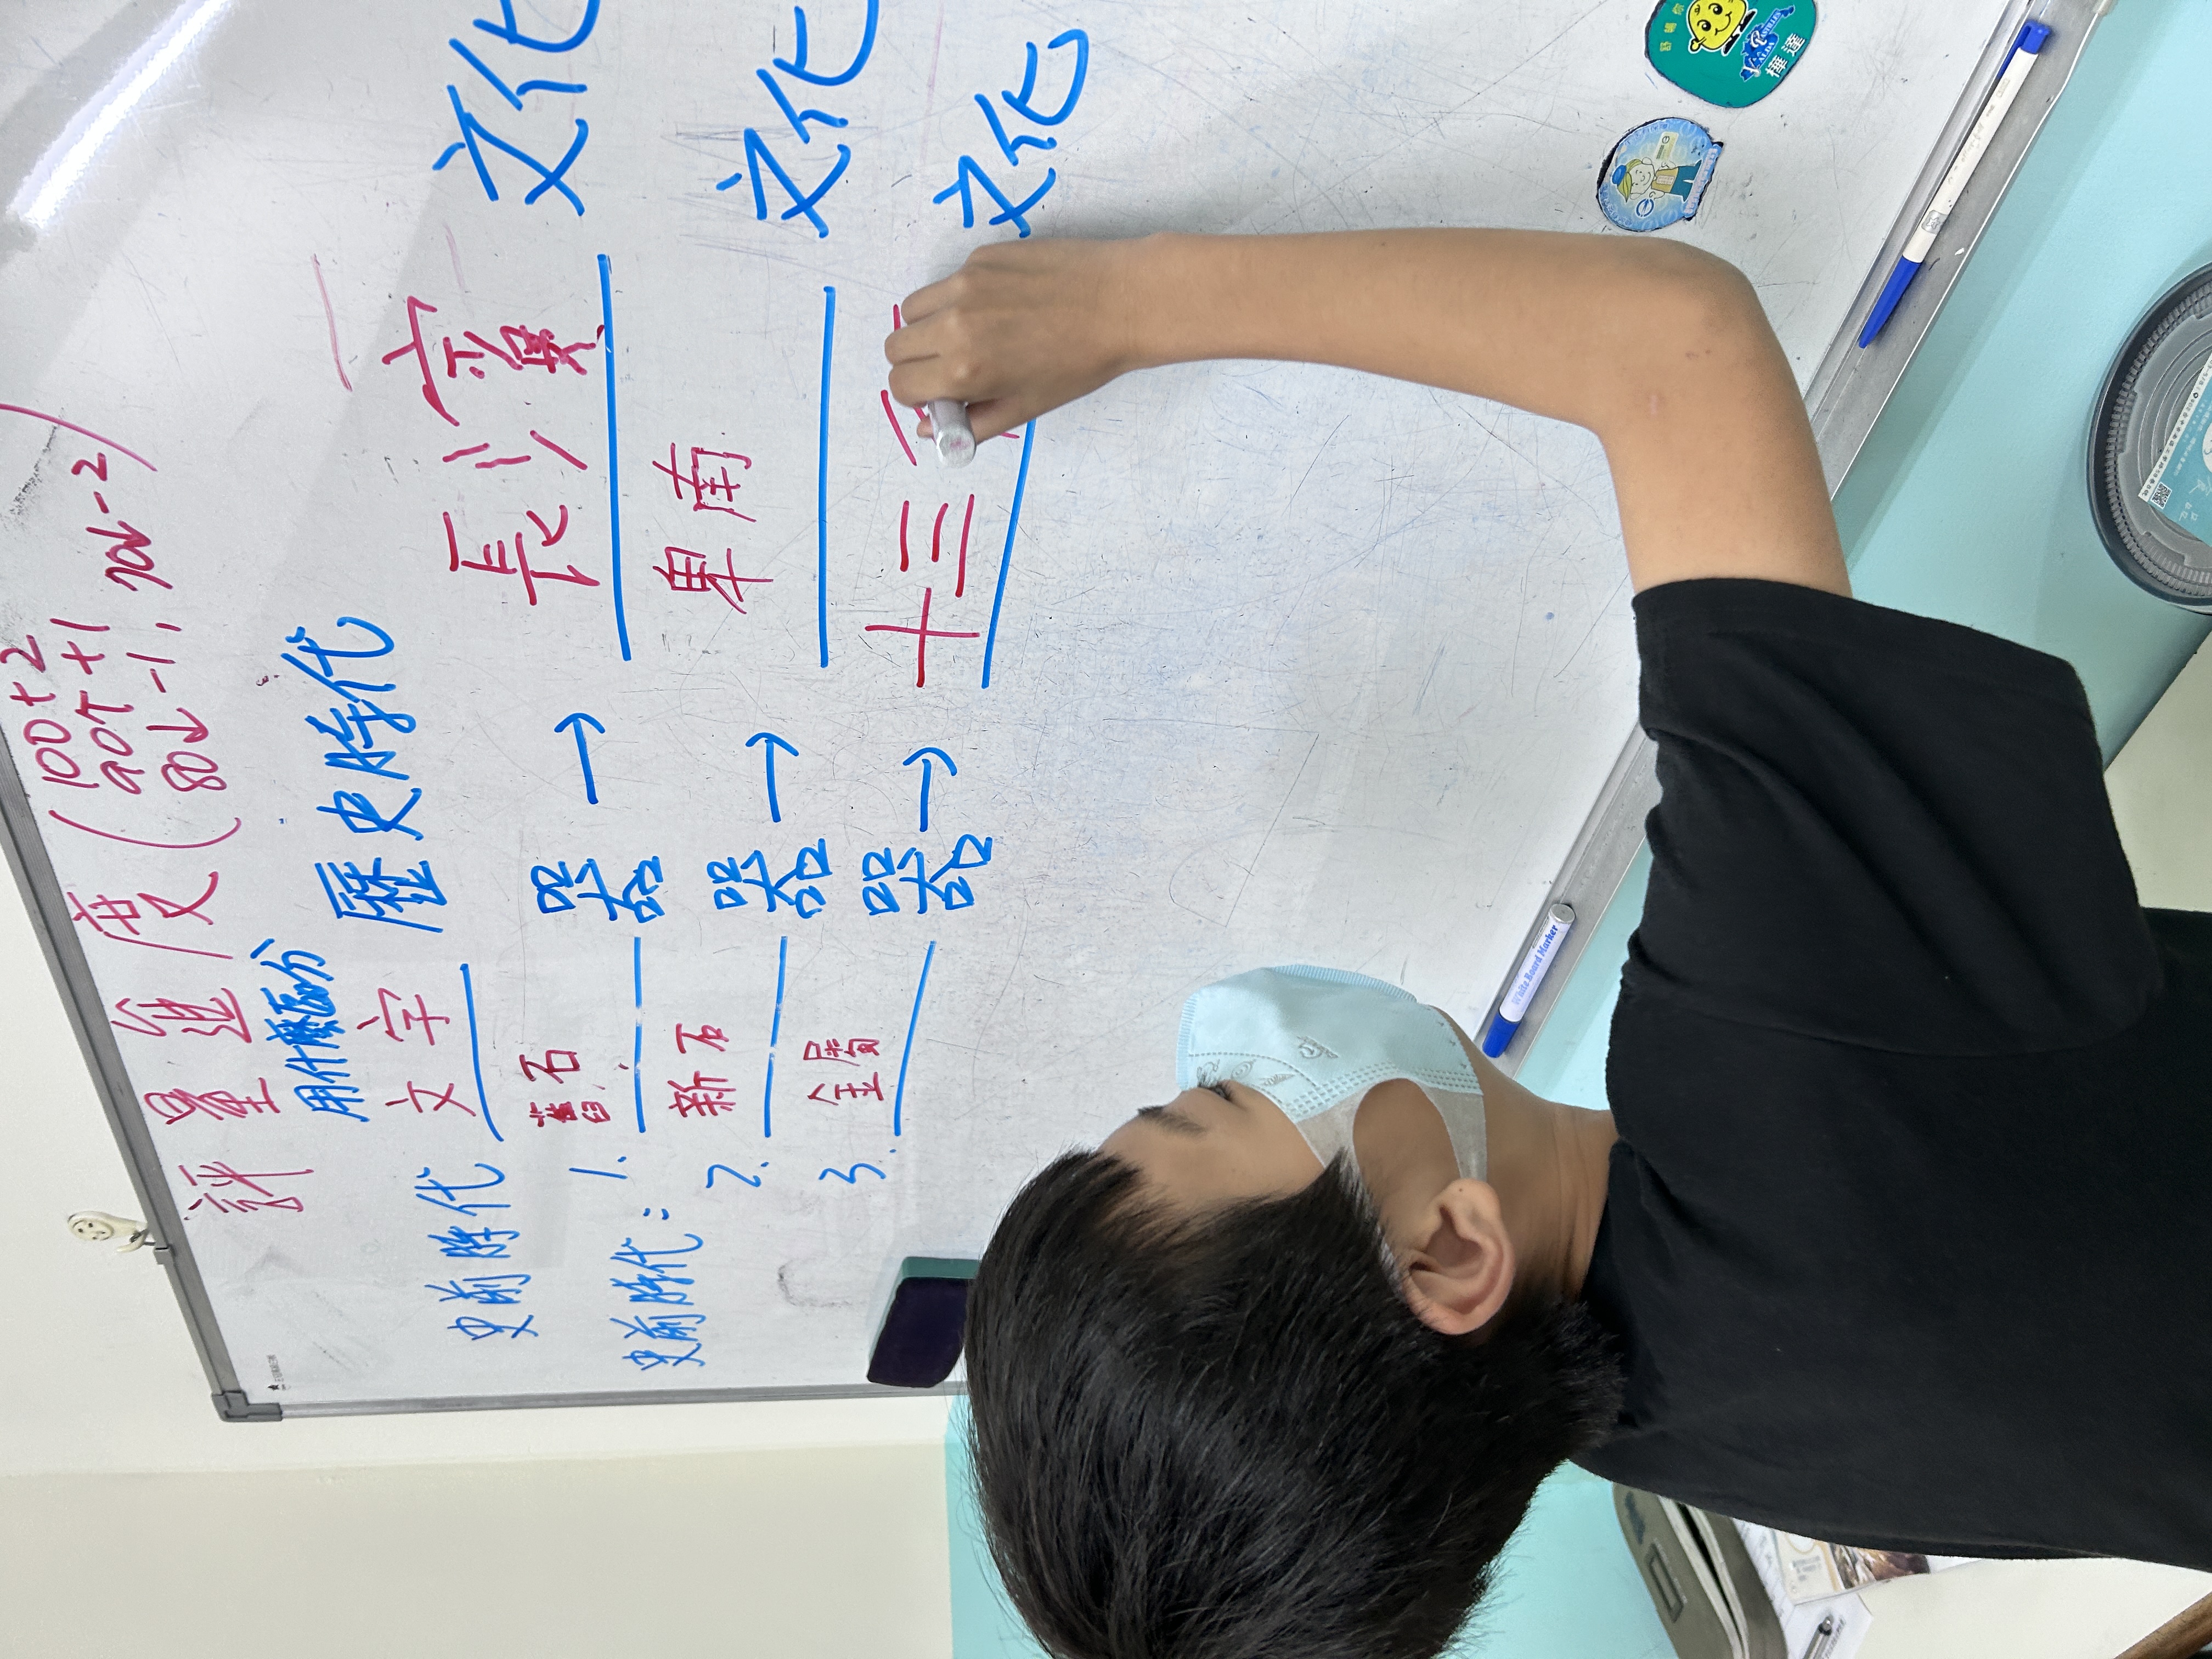 評量進度(100+2
90↑+1
80↓-1, 70↓-2)
用什麼區分
史前時代 文字 歷史時代
史前時代: 1. 舊石器→長濱文化
2. 新石器→卑南文化
3. 金屬器→十三文化
White Board Marker
樺達